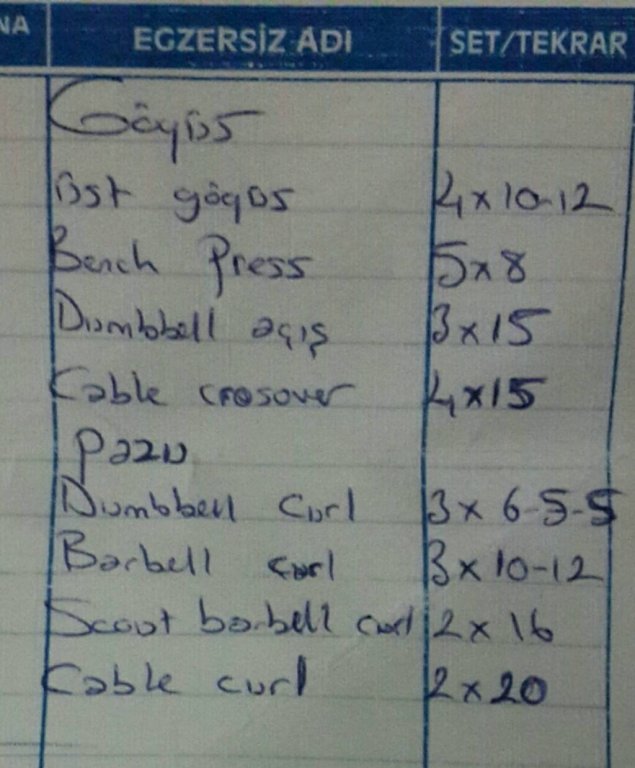 NA EGZERSİZ ADI SET/TEKRAR
Göğüs
üst göğüs 4x10-12
Bench Press 5x8
Dumbbell açış 3x15
Cable crosover 4x15
Pazu
Dumbbell Curl 3x 6-5-5
Barbell curl 3x10-12
Scout barbell curl 2x16
Cable curl 2x20